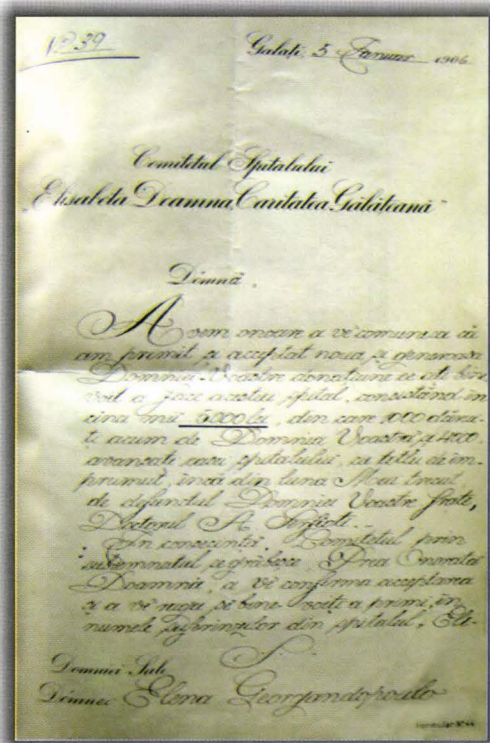 1239
Galați, 5 Ianuar 1906
Comitetul Spitalului
„Elisabeta Doamna, Caritatea Gălățeană"
Dómnă,
Avem onoare a vĕ comunica că
am primit și acceptat noua și generosa
Domniei-Voastre donațiune ce ați bine
voit a face acestui spital, consistând în
cinci mii 5000 lei, din care 1000 dăru-
iți acum de Domnia Voastră și 4000
avansate casei spitalului, ca titlu de îm-
prumut, încă din luna Mai trecut
de defunctul Domniei Voastre frate,
Doctorul A.
În consecință Comitetul prin
subsemnatul se grăbesce, Prea Onorată
Doamnă, a vĕ confirma acceptarea
și a vĕ ruga să bine-voiți a primi, în
numele suferinzilor din spitalul „Eli-
Domniei Sale
Dómnei Elena Georjandopoulo